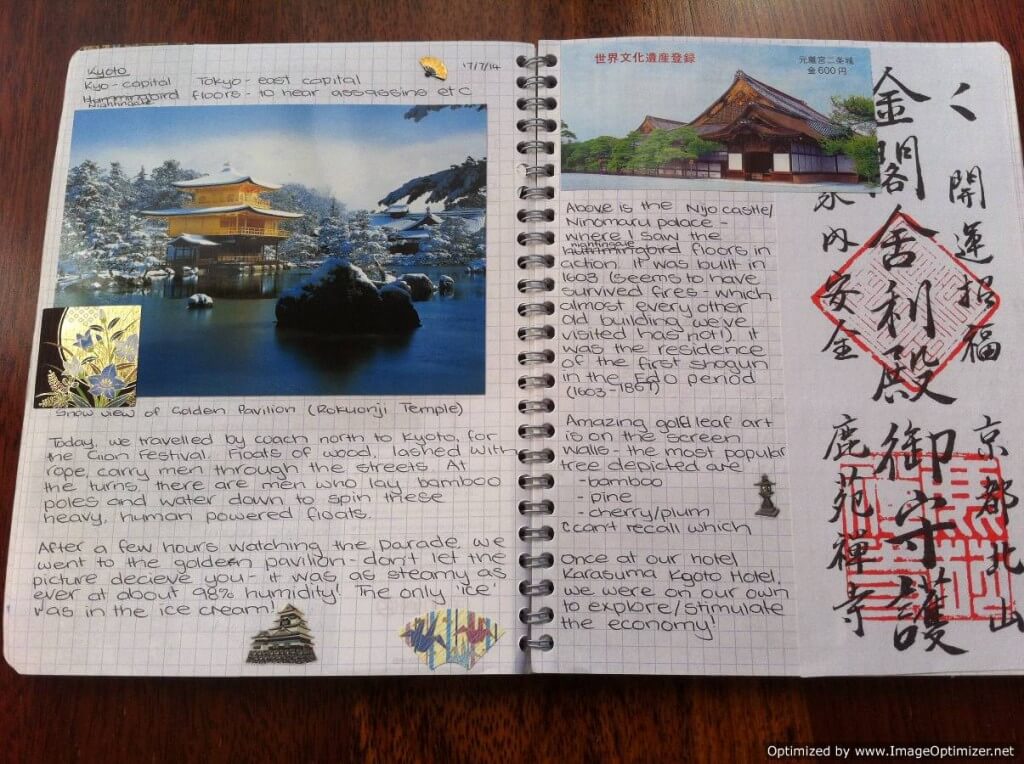 Kyoto 17/7/14
Kyo - capital Tokyo - east capital
Hummingbird floors - to hear assassins etc
Nightingale
Snow view of Golden Pavilion (Rokuonji Temple)
Today, we travelled by coach north to Kyoto, for
the Gion Festival. Floats of wood, lashed with
rope, carry men through the streets. At
the turns, there are men who lay bamboo
poles and water down to spin these
heavy, human powered floats.
After a few hours watching the parade, we
went to the golden pavilion - don't let the
picture decieve you - it was as steamy as
ever at about 98% humidity! The only 'ice'
was in the ice cream!
世界文化遺産登録
元離宮二条城
金600円
Above is the Nijo castle/
Ninomaru palace -
where I saw the
nightingale
Hummingbird floors in
action. It was built in
1603 (seems to have
survived fires - which
almost every other
old building we've
visited has not!). It
was the residence
of the first shogun
in the Edo period
(1603-1867)
Amazing gold leaf art
is on the screen
walls - the most popular
tree depicted are
- bamboo
- pine
- cherry/plum
(can't recall which
Once at our hotel
Karasuma Kyoto Hotel,
we were on our own
to explore/stimulate
the economy!
開運招福
金閣舎利殿
内安全
京都北山
御守護
鹿苑禅寺
Optimized by www.ImageOptimizer.net